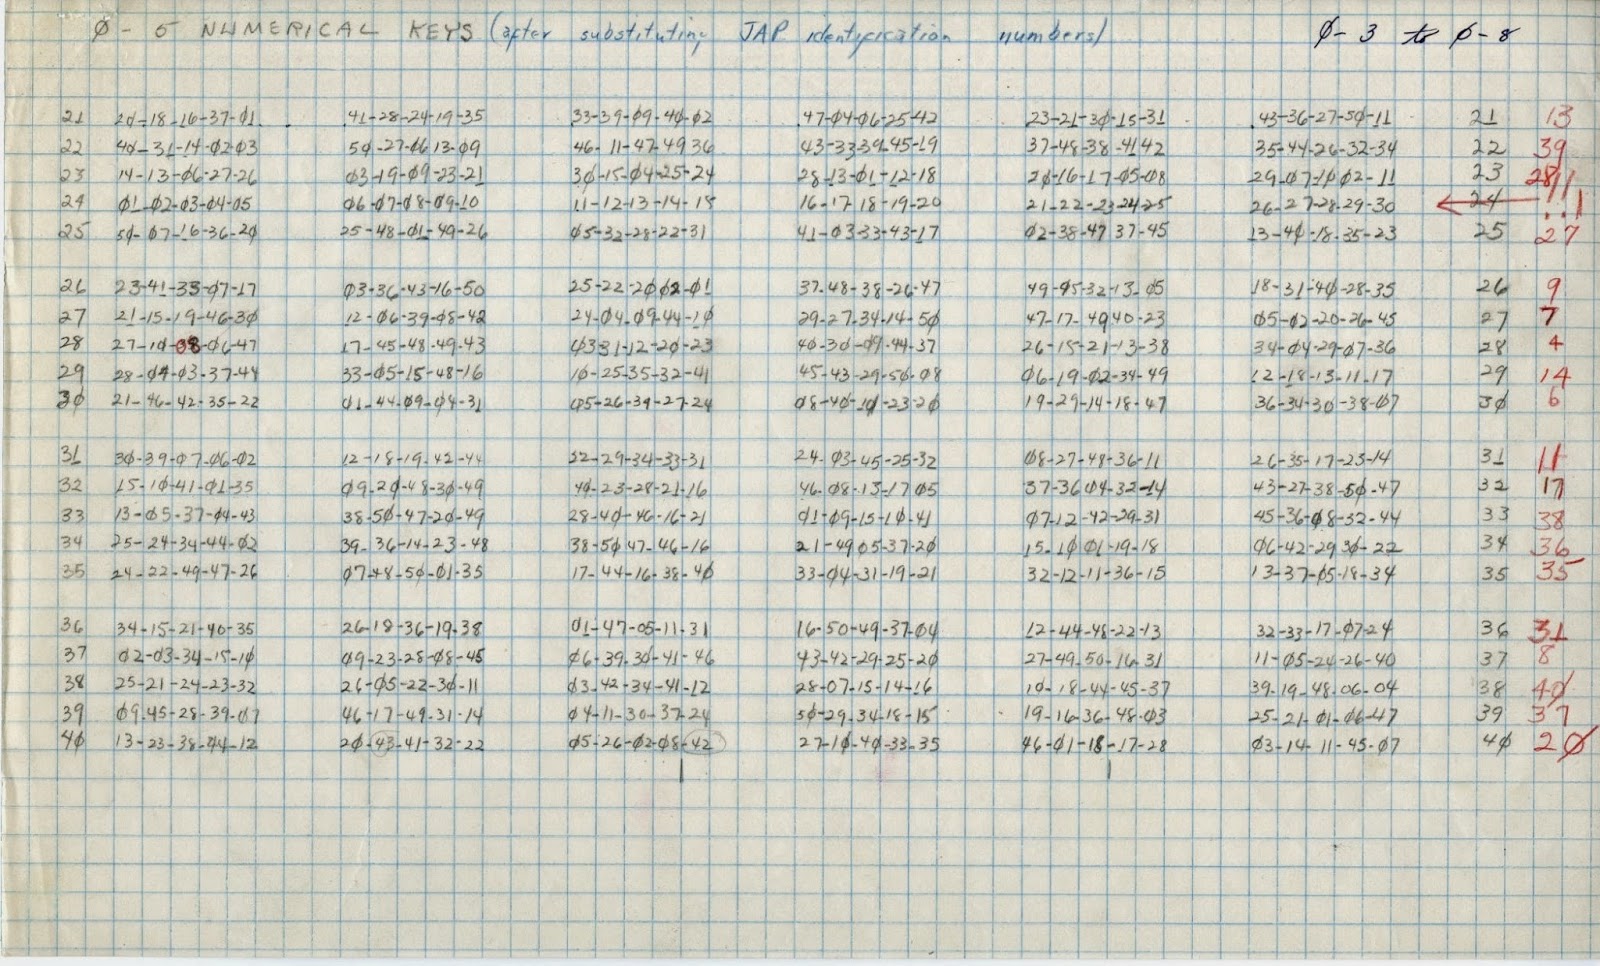 Ø - 5 NUMERICAL KEYS (after substituting JAP identification numbers) Ø-3 to Ø-8
21 2Ø-18-16-37-Ø1 41-28-24-19-35 33-39-Ø9-4Ø-Ø2 47-Ø4-Ø6-25-42 23-21-3Ø-15-31 43-36-27-5Ø-11 21 13
22 4Ø-31-14-Ø2-Ø3 5Ø-27-Ø6 13-Ø9 46-11-47-49 36 43-33-39-45-19 37-48-38-41 42 35-44-26-32-34 22 39
23 14-13-Ø6-27-26 Ø3-19-Ø9-23-21 3Ø-15-Ø4-25-24 28-13-Ø1-12-18 2Ø-16-17-Ø5-Ø8 29-Ø7-1Ø Ø2-11 23 28
24 Ø1-Ø2-Ø3-Ø4-Ø5 Ø6-Ø7-Ø8-Ø9-10 11-12-13-14-15 16-17-18-19-20 21-22-23-24-25 26-27-28-29-30 24 !!!
25 5Ø-Ø7-16-36-2Ø 25-48-Ø1-49-26 Ø5-32-28-22-31 41-Ø3-33-43-17 Ø2-38-47 37-45 13-4Ø-18-35-23 25 27
26 23-41-33-Ø7-17 Ø3-36-43-16-50 25-22-2Ø Ø2-Ø1 37-48-38-26-47 49-45-32-13-Ø5 18-31-4Ø-28-35 26 9
27 21-15-19-46-3Ø 12-Ø6-39-Ø8-42 24-Ø4-Ø9-44-1Ø 29-27-34-14-5Ø 47-17-49 40-23 Ø5-Ø2-20-26-45 27 7
28 27-1Ø-Ø8-Ø6-47 17-45-48-49-43 Ø3 31-12-2Ø-23 4Ø-3Ø-Ø9-44-37 26-15-21-13-38 34-Ø4-29-Ø7-36 28 4
29 28-Ø4-Ø3-37-44 33-Ø5-15-48-16 1Ø-25-35-32-41 45-43-29-5Ø-Ø8 Ø6-19-Ø2-34-49 12-18-13-11-17 29 14
3Ø 21-46-42-35-22 Ø1-44-Ø9-Ø4-31 Ø5-26-39-27-24 Ø8-4Ø-1Ø-23-2Ø 19-29-14-18-47 36-34-30-38-Ø7 3Ø 6
31 3Ø-39-Ø7-Ø6-Ø2 12-18-19-42-44 22-29-34-33-31 24-Ø3-45-25-32 Ø8-27-48-36-11 26-35-17-23-14 31 11
32 15-1Ø-41-Ø1-35 Ø9-2Ø-48-3Ø-49 4Ø-23-28-21-16 46-Ø8-13-17 Ø5 37-36 Ø4-32-14 43-27-38-5Ø-47 32 17
33 13-Ø5-37-Ø4-43 38-5Ø-47-2Ø-49 28-4Ø-46-16-21 Ø1-Ø9-15-1Ø-41 Ø7-12-42-29-31 45-36-Ø8-32-44 33 38
34 25-24-34-44-Ø2 39-36-14-23-48 38-5Ø 47-46-16 21-49 Ø5-37-2Ø 15-1Ø Ø1-19-18 Ø6-42-29 3Ø-22 34 36
35 24-22-49-47-26 Ø7-48-5Ø-Ø1-35 17-44-16-38-4Ø 33-Ø4-31-19-21 32-12-11-36-15 13-37-Ø5-18-34 35 35
36 34-15-21-40-35 26-18-36-19-38 Ø1-47-05-11-31 16-50-49-37-Ø4 12-44-48-22-13 32-33-17-Ø7-24 36 31
37 Ø2-Ø3-34-15-1Ø Ø9-23-28-Ø8-45 Ø6-39-3Ø-41-46 43-42-29-25-2Ø 27-49-50-16-31 11-Ø5-24-26-40 37 8
38 25-21-24-23-32 26-Ø5-22-3Ø-11 Ø3-42-34-41-12 28-07-15-14-16 1Ø-18-44-45-37 39-19-48-06-04 38 4Ø
39 Ø9-45-28-39-Ø7 46-17-49-31-14 Ø4-11-30-37-24 5Ø-29-34-18-15 19-16-36-48-Ø3 25-21-Ø1-Ø6-47 39 37
4Ø 13-23-38-44-12 2Ø-43-41-32-22 Ø5-26-Ø2-Ø8-42 27-1Ø-4Ø-33-35 46-Ø1-18-17-28 Ø3-14-11-45-Ø7 4Ø 2Ø